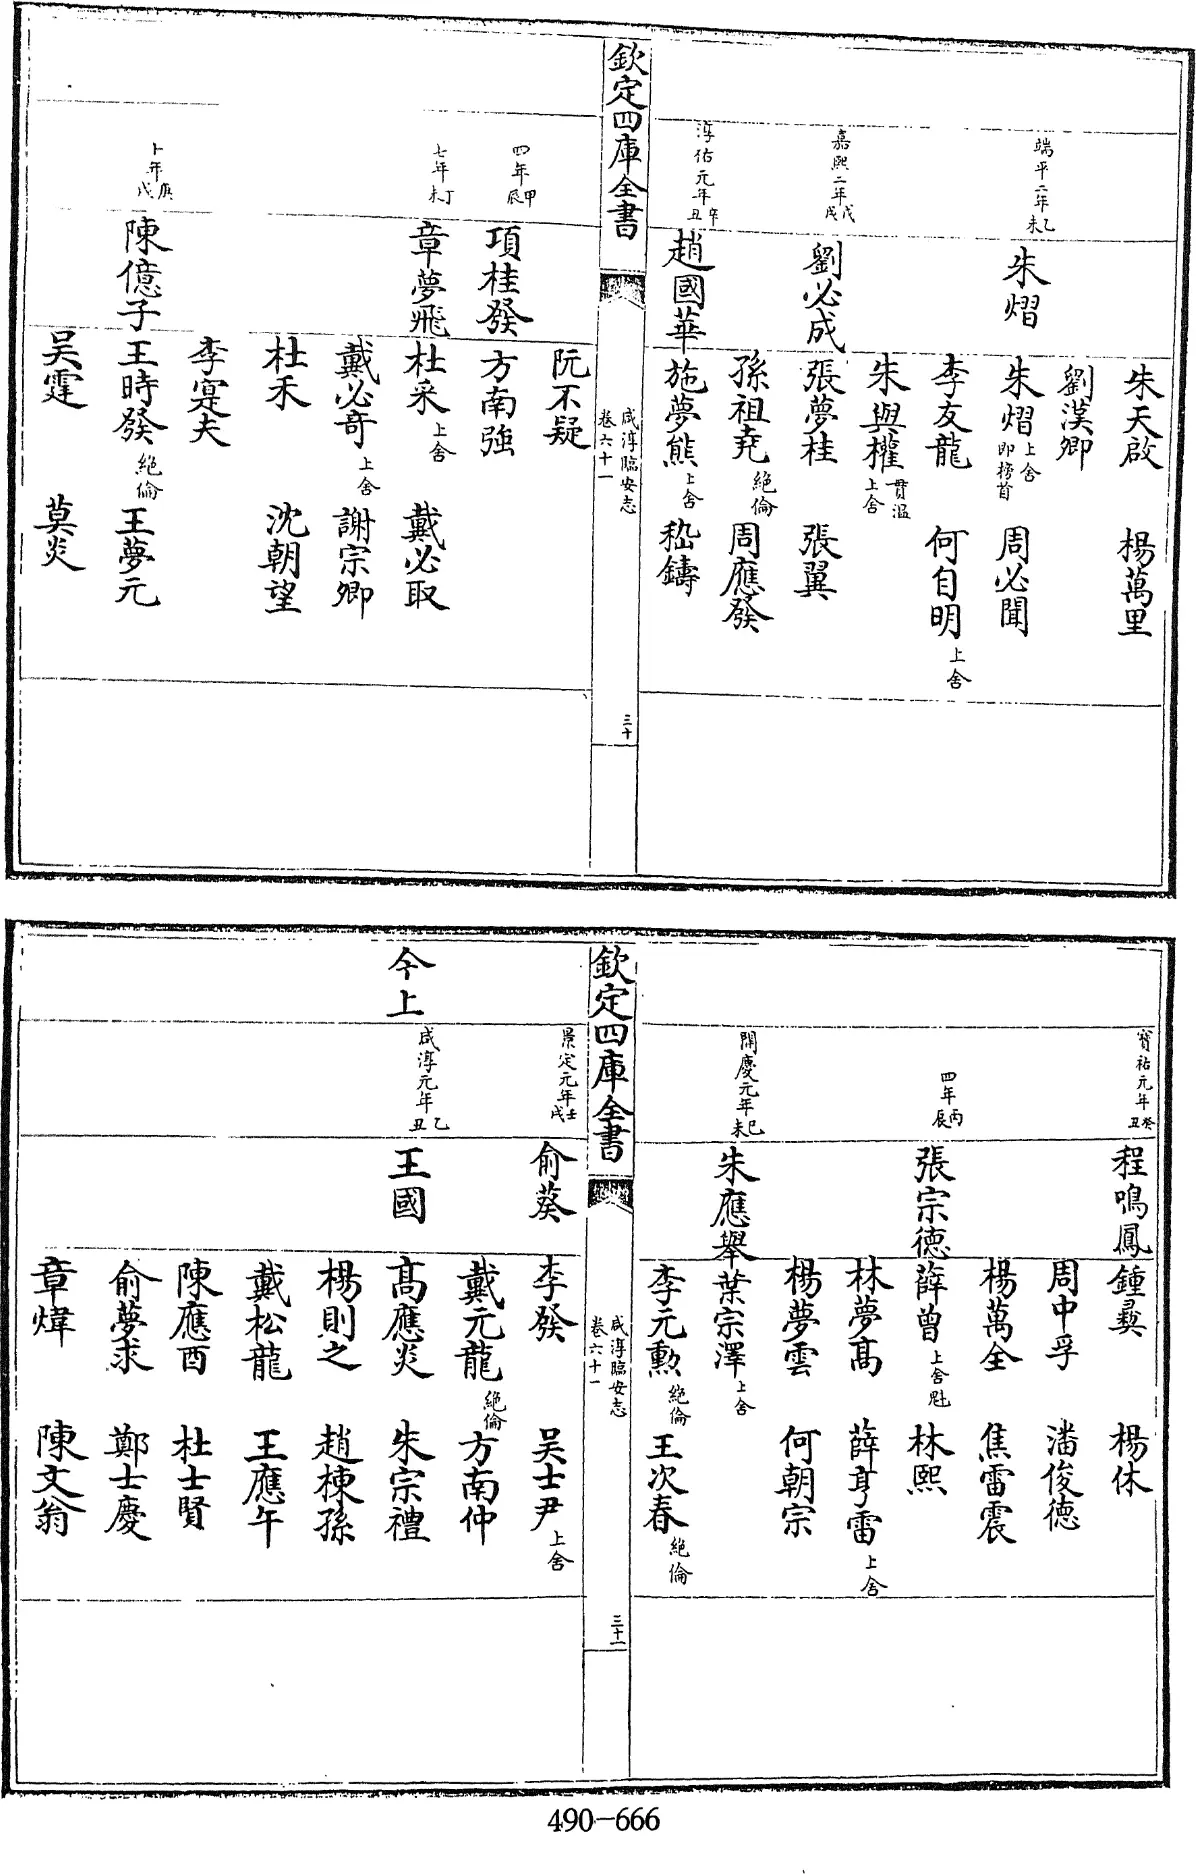 朱天啟 楊萬里
劉漢卿
端平二年乙未 朱熠 朱熠上舍即榜首 周必聞
李友龍 何自明上舍
朱與權貫溫上舍
嘉熙二年戊戌 劉必成 張夢桂 張翼
孫祖堯絕倫 周應發
淳佑元年辛丑 趙國華 施夢熊上舍 嵇鑄
欽定四庫全書 咸淳臨安志 卷六十一 三十
阮不疑
四年甲辰 項桂發 方南強
七年丁未 章夢飛 杜采上舍 戴必取
戴必奇上舍 謝宗卿
杜禾 沈朝望
李寔夫
十年庚戌 陳億子 王時發絕倫 王夢元
吳霆 莫炎
寶祐元年癸丑 程鳴鳳 鍾㒖 楊休
周中孚 潘俊德
楊萬全 焦雷震
四年丙辰 張宗德 薛曾上舍魁 林熙
林夢高 薛亨雷上舍
楊夢雲 何朝宗
開慶元年巳未 朱應舉 葉宗澤上舍
李元勳絕倫 王次春絕倫
欽定四庫全書 咸淳臨安志 卷六十一 三十一
景定元年壬戌 俞葵 李發 吳士尹上舍
戴元龍絕倫 方南仲
今上 咸淳元年乙丑 王國 高應炎 朱宗禮
楊則之 趙棟孫
戴松龍 王應午
陳應酉 杜士賢
俞夢求 鄭士慶
章煒 陳文翁
490-666